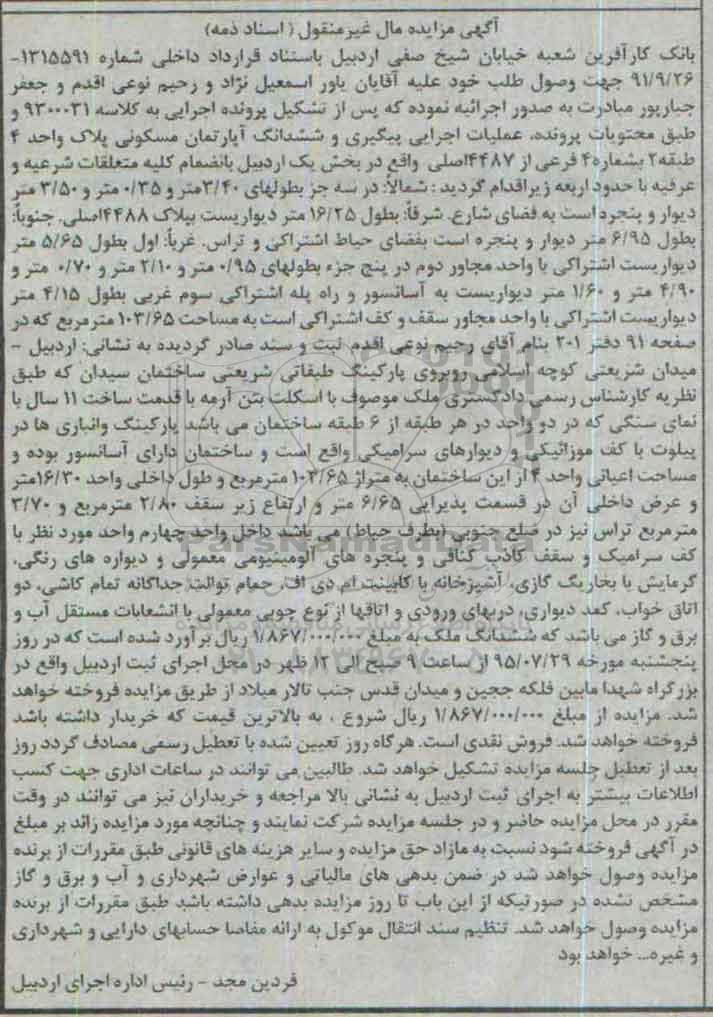 آگهی مزایده مال غیرمنقول (اسناد ذمه)
بانک کارآفرین شعبه خیابان شیخ صفی اردبیل باستناد قرارداد داخلی شماره ۱۳۱۵۵۹۱-
۹۱/۹/۲۶ جهت وصول طلب خود علیه آقایان یاور اسمعیل نژاد و رحیم نوعی اقدم و جعفر
جبارپور مبادرت به صدور اجرائیه نموده که پس از تشکیل پرونده اجرایی به کلاسه ۹۳۰۰۰۳۱ و
طبق محتویات پرونده، عملیات اجرایی پیگیری و ششدانگ آپارتمان مسکونی پلاک واحد ۴
طبقه۲ بشماره۴ فرعی از ۴۴۸۷اصلی واقع در بخش یک اردبیل بانضمام کلیه متعلقات شرعیه و
عرفیه با حدود اربعه زیراقدام گردید: شمالاً: در سه جز بطولهای ۳/۴۰متر و ۰/۳۵ متر و ۳/۵۰ متر
دیوار و پنجره است به فضای شارع. شرقاً: بطول ۱۶/۲۵ متر دیواریست بپلاک ۴۴۸۸اصلی. جنوباً:
بطول ۶/۹۵ متر دیوار و پنجره است بفضای حیاط اشتراکی و تراس. غرباً: اول بطول ۵/۶۵ متر
دیواریست اشتراکی با واحد مجاور دوم در پنج جزء بطولهای ۰/۹۵ متر و ۲/۱۰ متر و ۰/۷۰ متر و
۴/۹۰ متر و ۱/۶۰ متر دیواریست به آسانسور و راه پله اشتراکی سوم غربی بطول ۴/۱۵ متر
دیواریست اشتراکی با واحد مجاور سقف و کف اشتراکی است به مساحت ۱۰۳/۶۵ مترمربع که در
صفحه ۹۱ دفتر ۲۰۱ بنام آقای رحیم نوعی اقدم ثبت و سند صادر گردیده به نشانی: اردبیل -
میدان شریعتی کوچه اسلامی روبروی پارکینگ طبقاتی شریعتی ساختمان سیدان که طبق
نظریه کارشناس رسمی دادگستری ملک موصوف با اسکلت بتن آرمه با قدمت ساخت ۱۱ سال با
نمای سنگی که در دو واحد در هر طبقه از ۶ طبقه ساختمان می باشد پارکینگ وانباری ها در
پیلوت با کف موزائیکی و دیوارهای سرامیکی واقع است و ساختمان دارای آسانسور بوده و
مساحت اعیانی واحد ۴ از این ساختمان به متراژ ۱۰۳/۶۵ مترمربع و طول داخلی واحد ۱۶/۳۰متر
و عرض داخلی آن در قسمت پذیرایی ۶/۶۵ متر و ارتفاع زیر سقف ۲/۸۰ مترمربع و ۳/۷۰
مترمربع تراس نیز در ضلع جنوبی (بطرف حیاط) می باشد داخل واحد چهارم واحد مورد نظر با
کف سرامیک و سقف کاذب کنافی و پنجره های آلومینیومی معمولی و دیواره های رنگی،
گرمایش با بخاریگ گازی، آشپزخانه با کابینت ام.دی اف، حمام توالت جداگانه تمام کاشی، دو
اتاق خواب، کمد دیواری، دربهای ورودی و اتاقها از نوع چوبی معمولی با انشعابات مستقل آب و
برق و گاز می باشد که ششدانگ ملک به مبلغ ۱/۸۶۷/۰۰۰/۰۰۰ ریال برآورد شده است که در روز
پنجشنبه مورخه ۹۵/۰۷/۲۹ از ساعت ۹ صبح الی ۱۲ ظهر در محل اجرای ثبت اردبیل واقع در
بزرگراه شهدا مابین فلکه ججین و میدان قدس جنب تالار میلاد از طریق مزایده فروخته خواهد
شد. مزایده از مبلغ ۱/۸۶۷/۰۰۰/۰۰۰ ریال شروع ، به بالاترین قیمت که خریدار داشته باشد
فروخته خواهد شد. فروش نقدی است. هرگاه روز تعیین شده با تعطیل رسمی مصادف گردد روز
بعد از تعطیل جلسه مزایده تشکیل خواهد شد. طالبین می توانند در ساعات اداری جهت کسب
اطلاعات بیشتر به اجرای ثبت اردبیل به نشانی بالا مراجعه و خریداران نیز می توانند در وقت
مقرر در محل مزایده حاضر و در جلسه مزایده شرکت نمایند و چنانچه مورد مزایده زائد بر مبلغ
در آگهی فروخته شود نسبت به مازاد حق مزایده و سایر هزینه های قانونی طبق مقررات از برنده
مزایده وصول خواهد شد در ضمن بدهی های مالیاتی و عوارض شهرداری و آب و برق و گاز
مشخص نشده در صورتیکه از این باب تا روز مزایده بدهی داشته باشد طبق مقررات از برنده
مزایده وصول خواهد شد. تنظیم سند انتقال موکول به ارائه مفاصا حسابهای دارایی و شهرداری
و غیره... خواهد بود
فردین مجد - رئیس اداره اجرای اردبیل